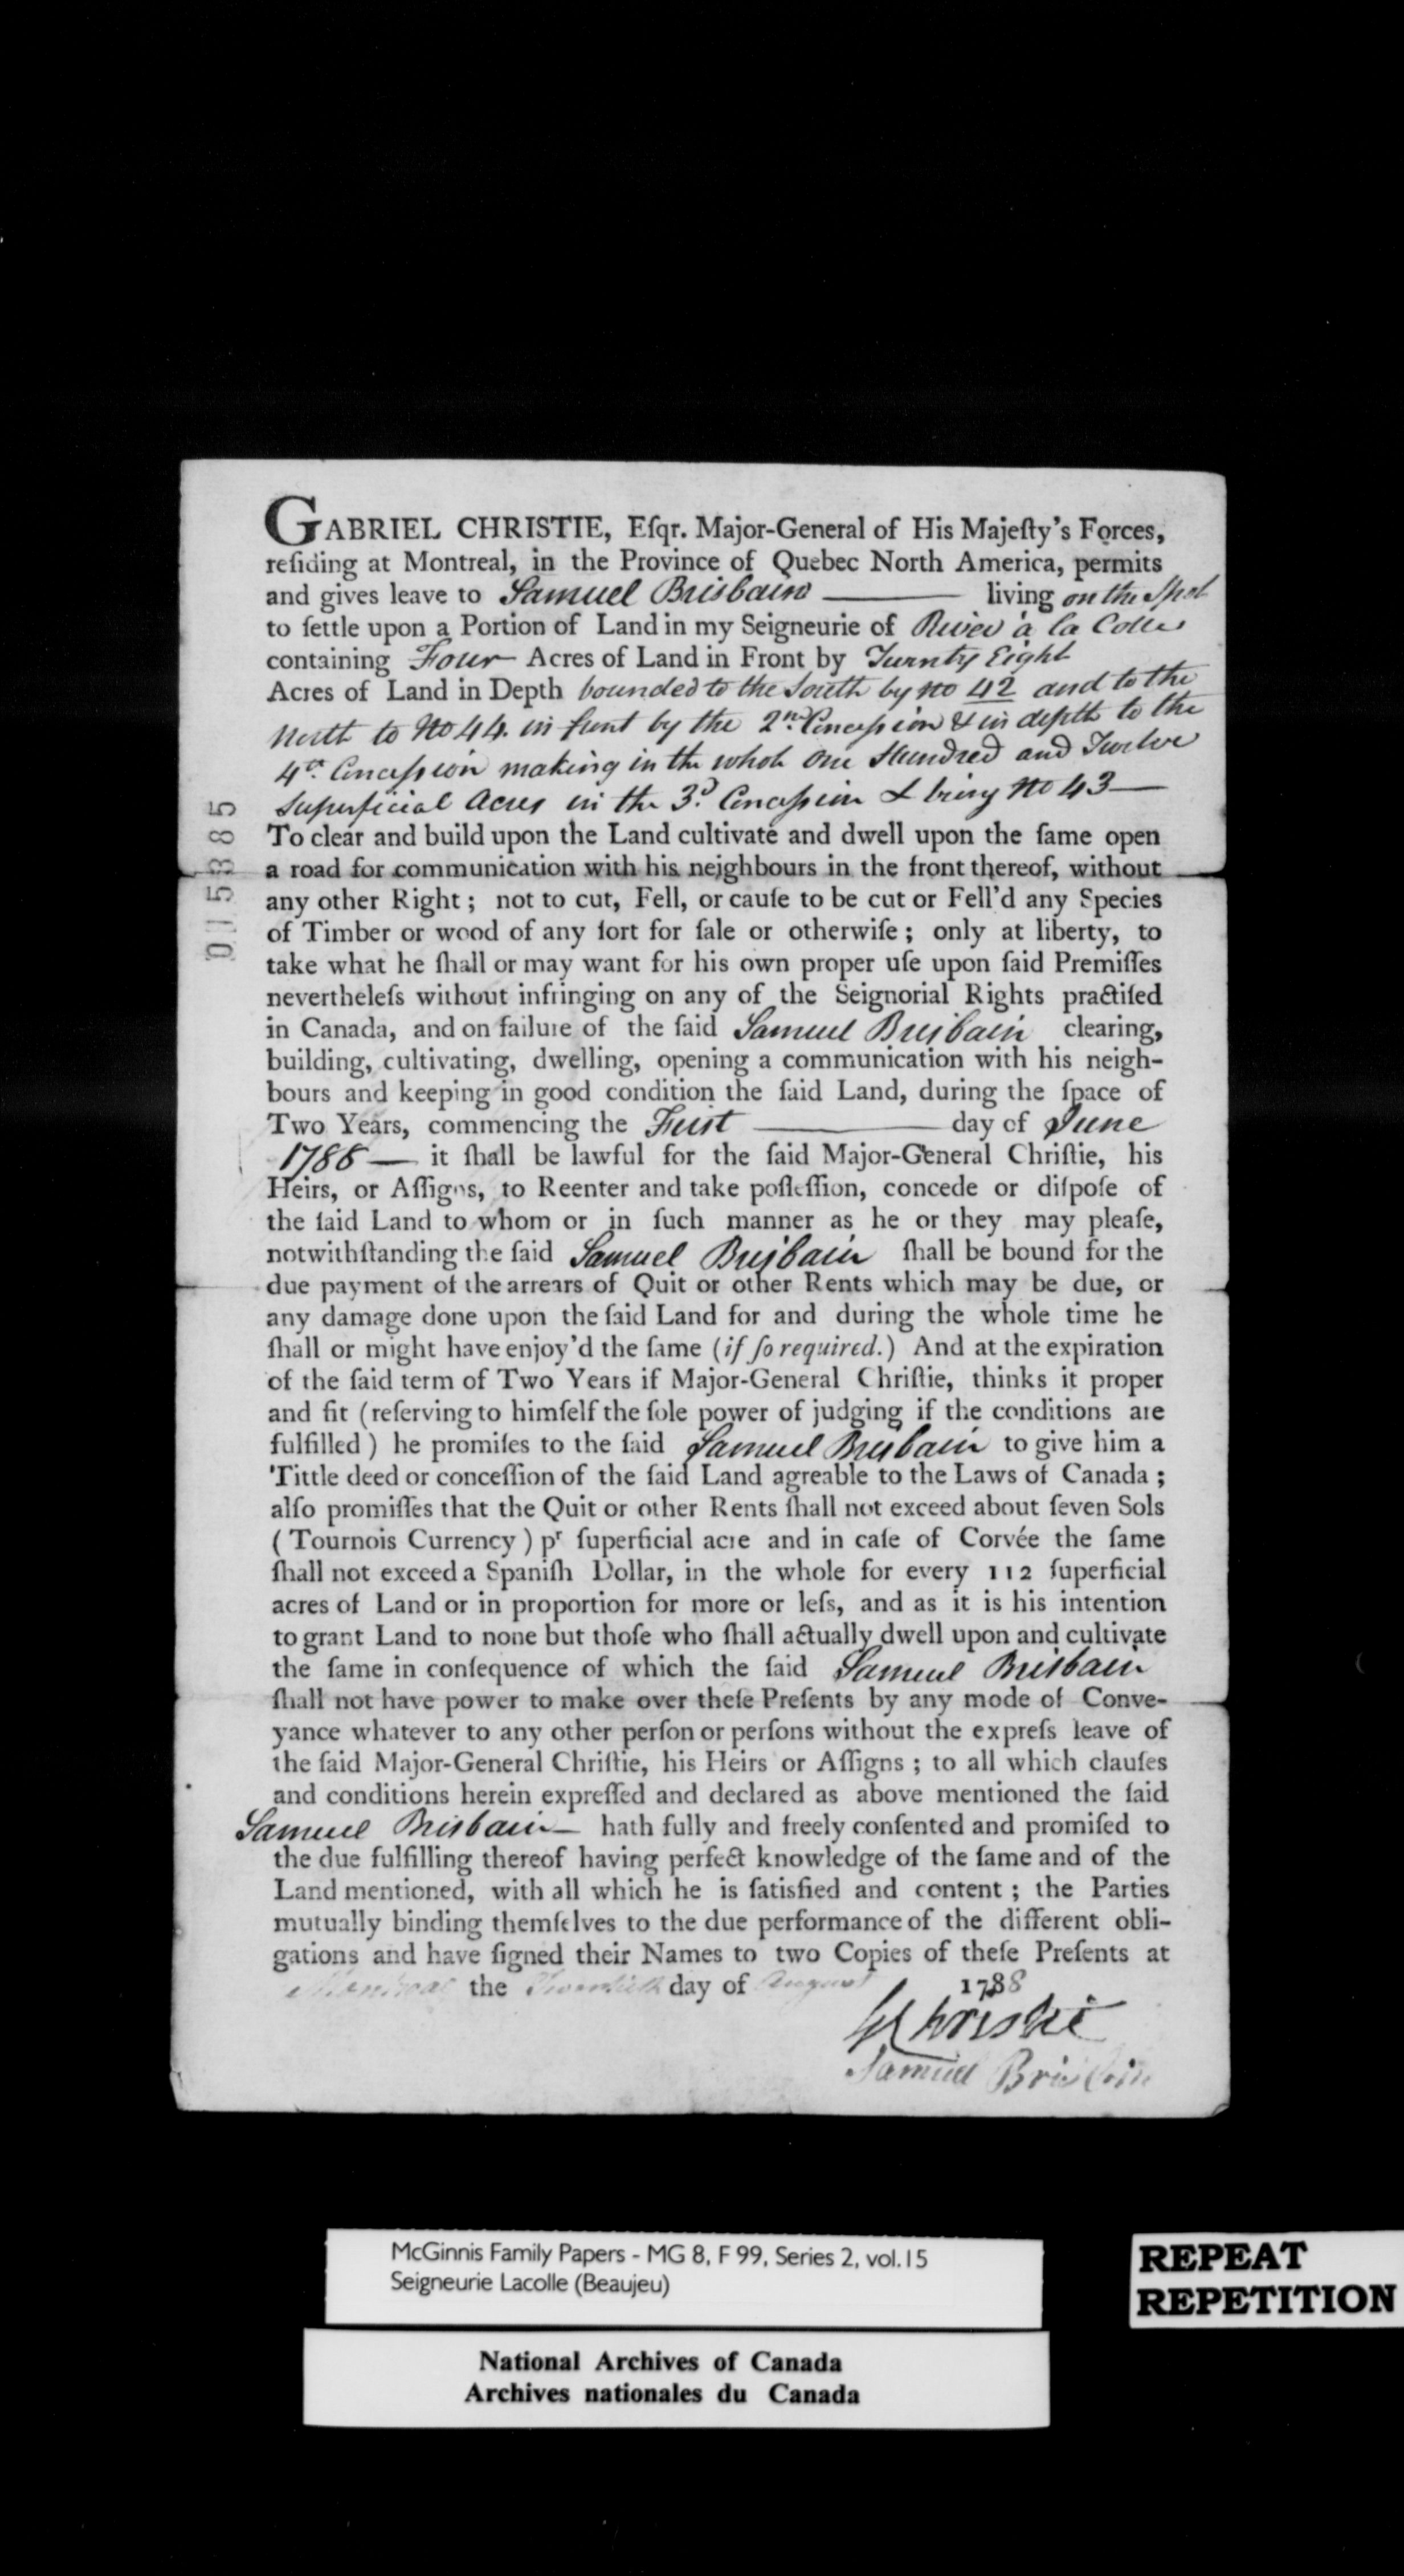 GABRIEL CHRISTIE, Eſqr. Major-General of His Majeſty's Forces,
reſiding at Montreal, in the Province of Quebec North America, permits
and gives leave to Samuel Brisbain living on the Spot
to ſettle upon a Portion of Land in my Seigneurie of River a la Colle
containing Four Acres of Land in Front by Twenty Eight
Acres of Land in Depth bounded to the South by no 42 and to the
North to No 44. in front by the 2nd. Conceſsion & in depth to the
4th. Conceſsion making in the whole One Hundred and Twelve
Superficial Acres in the 3d. Conceſsion & being No 43—
To clear and build upon the Land cultivate and dwell upon the ſame open
a road for communication with his neighbours in the front thereof, without
any other Right ; not to cut, Fell, or cauſe to be cut or Fell'd any Species
of Timber or wood of any ſort for ſale or otherwiſe ; only at liberty, to
take what he ſhall or may want for his own proper uſe upon ſaid Premiſſes
nevertheleſs without infringing on any of the Seignorial Rights practiſed
in Canada, and on failure of the ſaid Samuel Brisbain clearing,
building, cultivating, dwelling, opening a communication with his neigh-
bours and keeping in good condition the ſaid Land, during the ſpace of
Two Years, commencing the First day of June
1788 — it ſhall be lawful for the ſaid Major-General Chriſtie, his
Heirs, or Aſſigns, to Reenter and take poſſeſſion, concede or diſpoſe of
the ſaid Land to whom or in ſuch manner as he or they may pleaſe,
notwithſtanding the ſaid Samuel Brisbain ſhall be bound for the
due payment of the arrears of Quit or other Rents which may be due, or
any damage done upon the ſaid Land for and during the whole time he
ſhall or might have enjoy'd the ſame (if ſo required.) And at the expiration
of the ſaid term of Two Years if Major-General Chriſtie, thinks it proper
and fit (reſerving to himſelf the ſole power of judging if the conditions are
fulfilled ) he promiſes to the ſaid Samuel Brisbain to give him a
Tittle deed or conceſſion of the ſaid Land agreable to the Laws of Canada ;
alſo promiſſes that the Quit or other Rents ſhall not exceed about ſeven Sols
( Tournois Currency ) pr ſuperficial acre and in caſe of Corvée the ſame
ſhall not exceed a Spaniſh Dollar, in the whole for every 112 ſuperficial
acres of Land or in proportion for more or leſs, and as it is his intention
to grant Land to none but thoſe who ſhall actually dwell upon and cultivate
the ſame in conſequence of which the ſaid Samuel Brisbain
ſhall not have power to make over theſe Preſents by any mode of Conve-
yance whatever to any other perſon or perſons without the expreſs leave of
the ſaid Major-General Chriſtie, his Heirs or Aſſigns ; to all which clauſes
and conditions herein expreſſed and declared as above mentioned the ſaid
Samuel Brisbain— hath fully and freely conſented and promiſed to
the due fulfilling thereof having perfect knowledge of the ſame and of the
Land mentioned, with all which he is ſatisfied and content ; the Parties
mutually binding themſelves to the due performance of the different obli-
gations and have ſigned their Names to two Copies of theſe Preſents at
Montreal the Twentieth day of August 1788
GChristie
Samuel Brisbin
015385
McGinnis Family Papers - MG 8, F 99, Series 2, vol.15
Seigneurie Lacolle (Beaujeu)
REPEAT
REPETITION
National Archives of Canada
Archives nationales du Canada